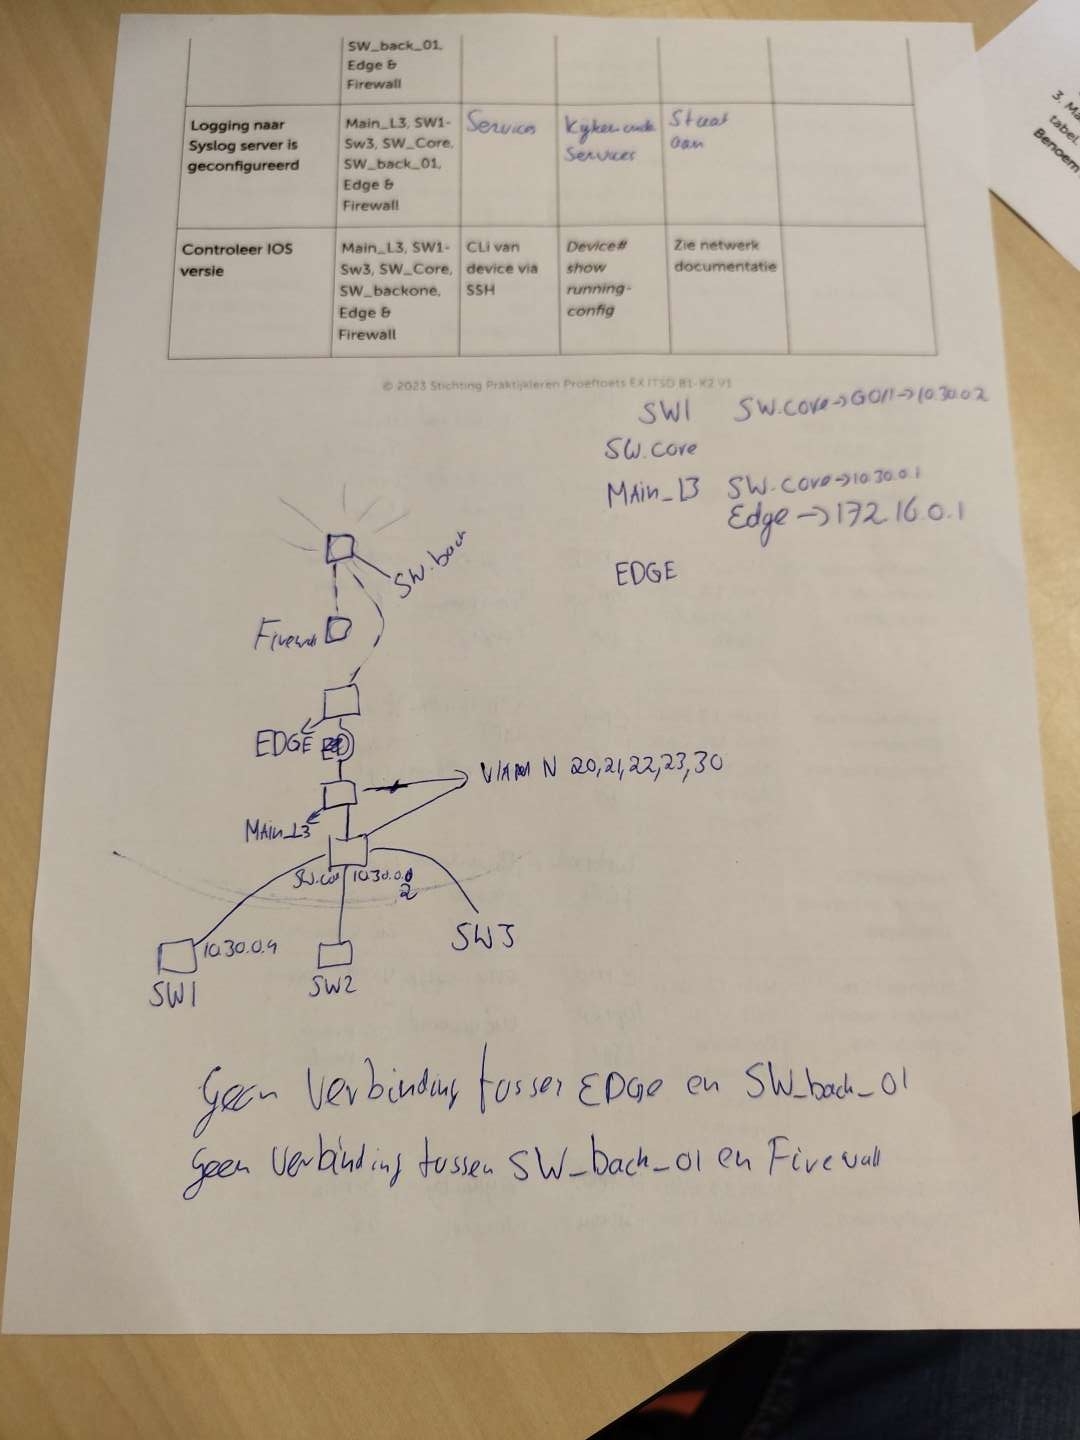 SW_back_01,
Edge &
Firewall
Logging naar
Syslog server is
geconfigureerd
Main_L3, SW1-
Sw3, SW_Core,
SW_back_01,
Edge &
Firewall
Services
Kijken onde
Services
Staat
aan
Controleer IOS
versie
Main_L3, SW1-
Sw3, SW_Core,
SW_backone,
Edge &
Firewall
CLi van
device via
SSH
Device#
show
running-
config
Zie netwerk
documentatie
© 2023 Stichting Praktijkleren Proeftoets EX.ITSD B1-K2 V1
SW1 SW.core->G0/1->10.30.0.2
SW.core
MAin_L3 SW.core->10.30.0.1
Edge ->172.16.0.1
EDGE
SW.back
Firewall
EDGE
VlAN 20,21,22,23,30
MAin_L3
10.30.0.
2
10.30.0.4
SW3
SW1
SW2
Geen Verbinding tusser EDGe en SW_back_01
Geen Verbinding tussen SW_back_01 en Firewall